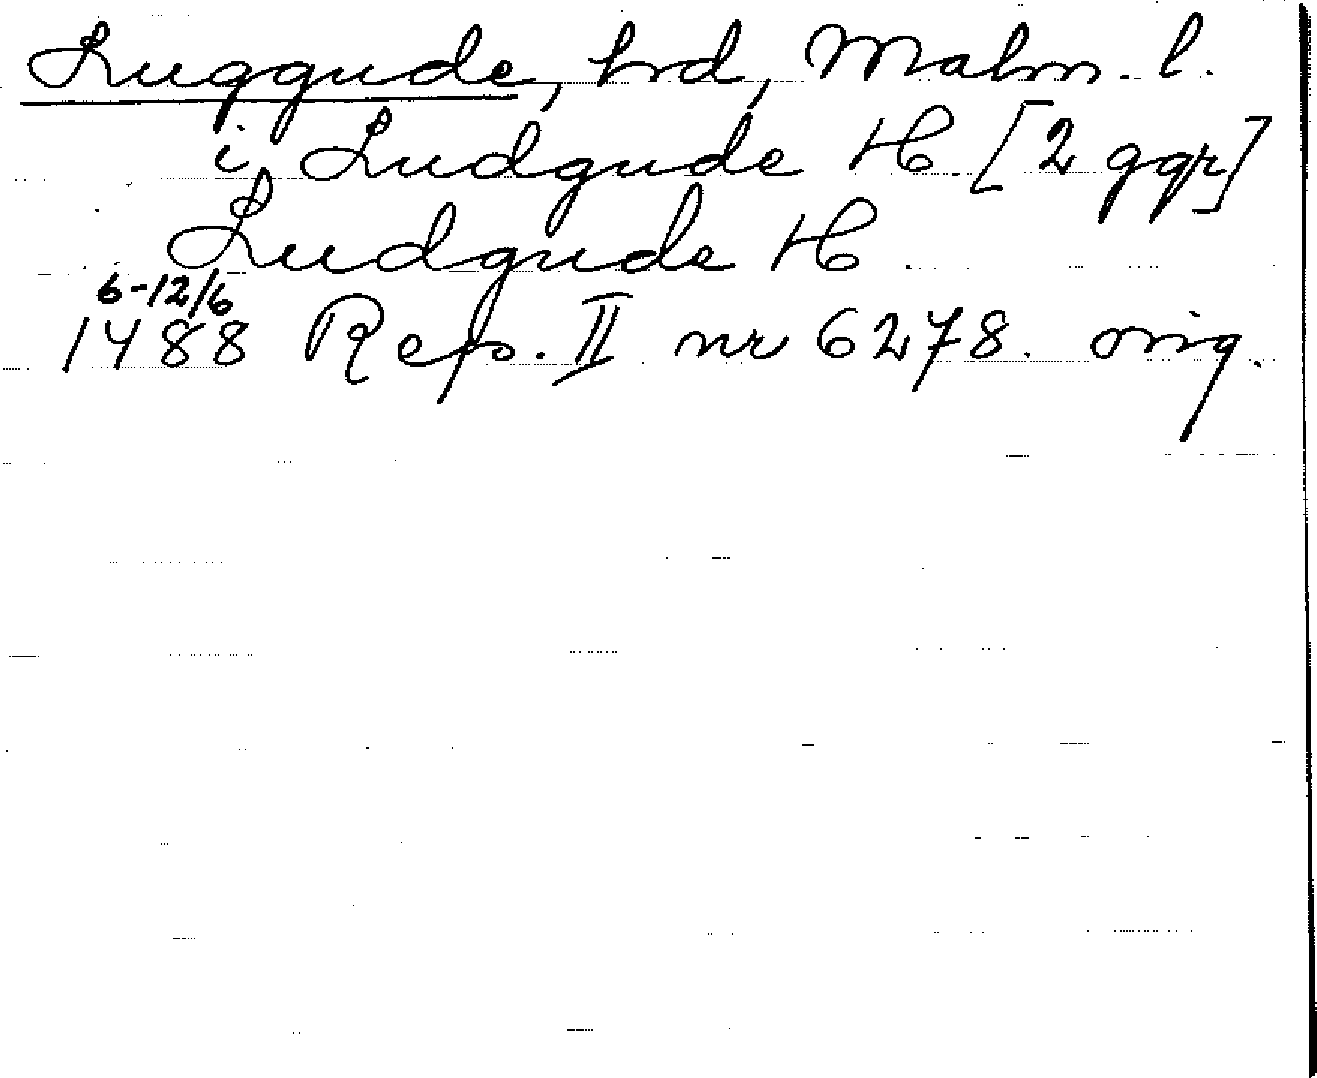 Luggude, hrd, Malm. l.
i Ludgude H [2 ggr]
Ludgude H
6-12/6
1488 Rep. II nr 6278. orig.